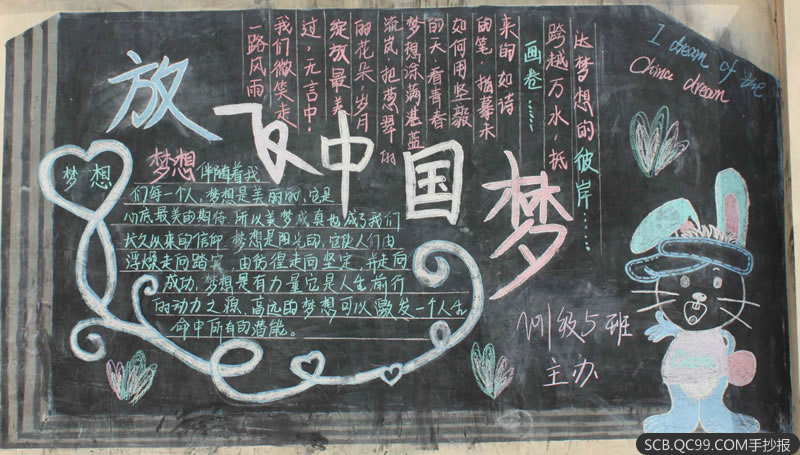 放飞中国梦
I dream of the
China dream
一路风雨
我们微笑走
过,无言中,
绽放最美
的花朵,岁月
流岚,把葱翠的
梦想涂满湛蓝
的天,看青春
如何用坚毅
的笔,描摹未
来的如诗
画卷……
跨越万水,抵
达梦想的彼岸……
梦想
梦想伴随着我
们每一个人,梦想是美丽的,它是
心底最美的期待,所以美梦成真也成了我们
长久以来的信仰,梦想是阳光的,它使人们由
浮躁走向踏实,由彷徨走向坚定,并走向
成功,梦想是有力量它是人生前行
的动力之源,高远的梦想可以激发一个人生
命中所有的潜能。
级5班
主办
SCB.QC99.COM手抄报